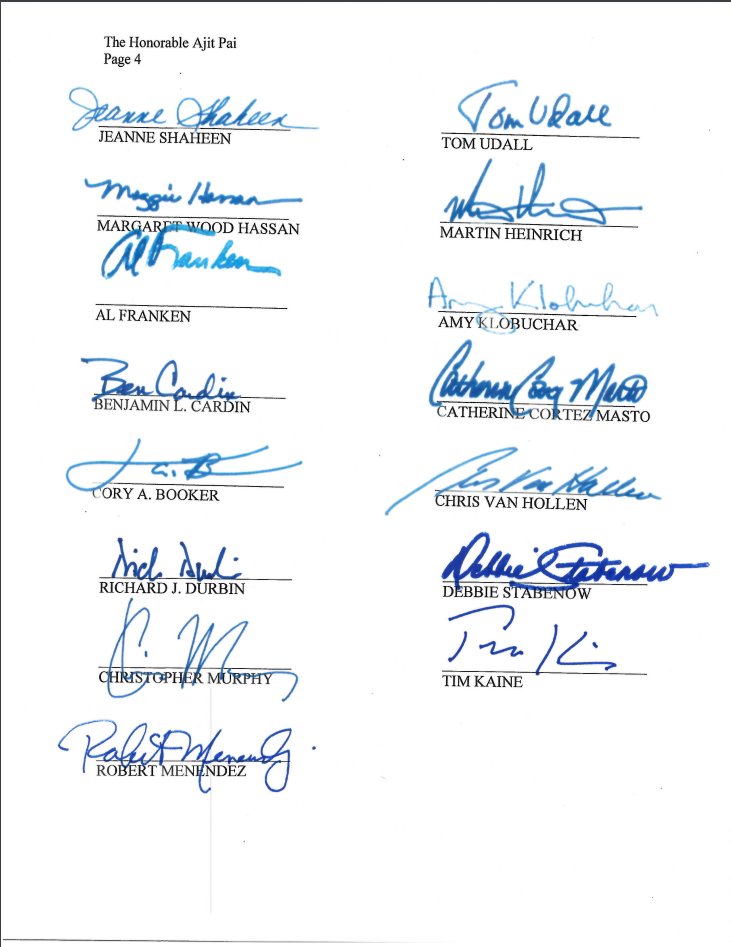 The Honorable Ajit Pai
Page 4
Jeanne Shaheen
JEANNE SHAHEEN
Tom Udall
TOM UDALL
Maggie Hassan
MARGARET WOOD HASSAN
MARTIN HEINRICH
Al Franken
AL FRANKEN
Amy Klobuchar
AMY KLOBUCHAR
Ben Cardin
BENJAMIN L. CARDIN
Catherine Cortez Masto
CATHERINE CORTEZ MASTO
CORY A. BOOKER
Chris Van Hollen
CHRIS VAN HOLLEN
Dick Durbin
RICHARD J. DURBIN
Debbie Stabenow
DEBBIE STABENOW
CHRISTOPHER MURPHY
Tim Kaine
TIM KAINE
Robert Menendez
ROBERT MENENDEZ